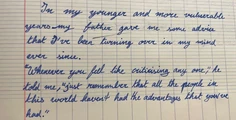 In my younger and more vulnerable
years my father gave me some advice
that I've been turning over in my mind
ever since.
"Whenever you feel like criticising any one," he
told me, "just remember that all the people in
this world haven't had the advantages that you've
had."